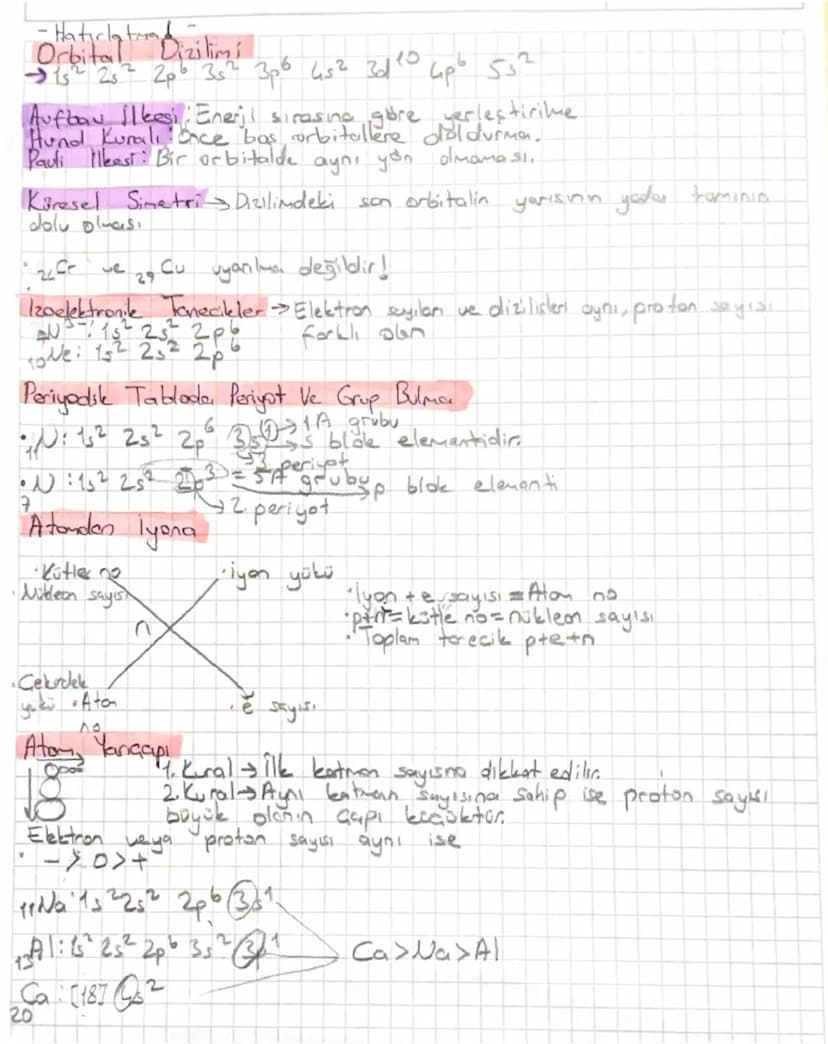 - Hatırlatma -
Orbital Dizilimi
→ 1s² 2s² 2p⁶ 3s² 3p⁶ 4s² 3d¹⁰ 4p⁶ 5s²
Aufbau İlkesi: Enerji sırasına göre yerleştirilme
Hund Kuralı: Önce boş orbitallere doldurma.
Pauli İlkesi: Bir orbitalde aynı yön olmaması.
Küresel Simetri → Dizilimdeki son orbitalin yarısının yada tamının
dolu olması
· ₂₄Cr ve ₂₉Cu uyarılma değildir!
İzoelektronik Tanecikler → Elektron sayıları ve dizilişleri aynı, proton sayısı
farklı olan
₇N³⁻: 1s² 2s² 2p⁶
₁₀Ne: 1s² 2s² 2p⁶
Periyodik Tabloda Periyot Ve Grup Bulma
· ₁₁N: 1s² 2s² 2p⁶ 3s¹ → 1A grubu
→ s blok elementidir.
→ 3. periyot
· ₇N: 1s² 2s² 2p³ = 5A grubu p blok elementi
→ 2. periyot
Atomdan İyona
· Kütle no · iyon yükü
· Nükleon sayısı
· İyon + e sayısı = Atom no
n · p+n = kütle no = nükleon sayısı
· Toplam tanecik p+e+n
· Çekirdek
yükü · Atom no · e⁻ sayısı
Atom Yarıçapı
1. Kural → İlk katman sayısına dikkat edilir.
2. Kural → Aynı katman sayısına sahip ise proton sayısı
büyük olanın çapı küçüktür.
Elektron veya proton sayısı aynı ise
· - > 0 > +
₁₁Na: 1s² 2s² 2p⁶ 3s¹
₁₃Al: 1s² 2s² 2p⁶ 3s² 3p¹ Ca > Na > Al
₂₀Ca: [18] 4s²